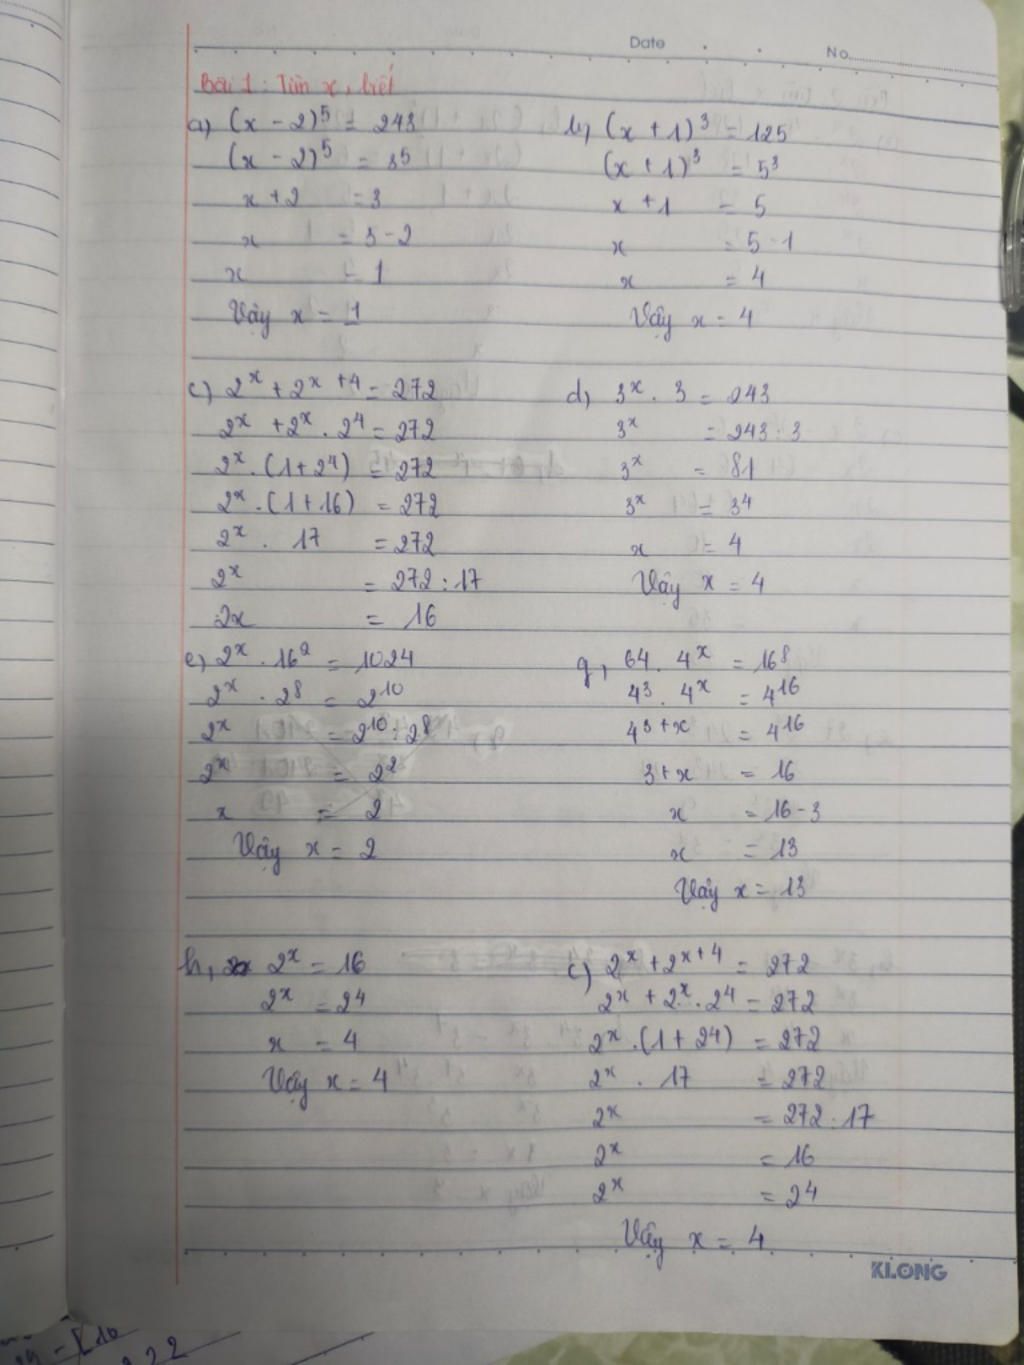 Date No
Bài 1: Tìm x, biết
a) (x - 2)⁵ = 243
(x - 2)⁵ = 3⁵
x + 2 = 3
x = 3 - 2
x = 1
Vậy x = 1
b, (x + 1)³ = 125
(x + 1)³ = 5³
x + 1 = 5
x = 5 - 1
x = 4
Vậy x = 4
c) 2ˣ + 2ˣ ⁺⁴ = 272
2ˣ + 2ˣ . 2⁴ = 272
2ˣ . (1 + 2⁴) = 272
2ˣ . (1 + 16) = 272
2ˣ . 17 = 272
2ˣ = 272 : 17
2x = 16
d, 3ˣ . 3 = 243
3ˣ = 243 : 3
3ˣ = 81
3ˣ = 3⁴
x = 4
Vậy x = 4
e, 2ˣ . 16² = 1024
2ˣ . 2⁸ = 2¹⁰
2ˣ = 2¹⁰ : 2⁸
2ˣ = 2²
x = 2
Vậy x = 2
g, 64 . 4ˣ = 16⁸
4³ . 4ˣ = 4¹⁶
4³⁺ˣ = 4¹⁶
3 + x = 16
x = 16 - 3
x = 13
Vậy x = 13
h, 2ˣ = 16
2ˣ = 2⁴
x = 4
Vậy x = 4
c) 2ˣ + 2ˣ⁺⁴ = 272
2ˣ + 2ˣ . 2⁴ = 272
2ˣ . (1 + 2⁴) = 272
2ˣ . 17 = 272
2ˣ = 272 : 17
2ˣ = 16
2ˣ = 2⁴
Vậy x = 4
KLONG